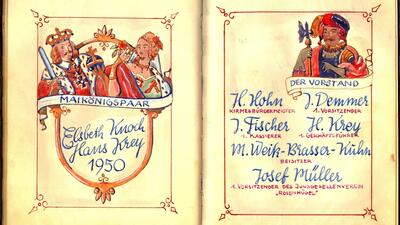 MAIKÖNIGSPAAR
Elsbeth Knoch
Hans Krey
1950
DER VORSTAND
H. Hohn J. Demmer
KIRMESBÜRGERMEISTER 1. VORSITZENDER
J. Fischer H. Krey
1. KASSIERER 1. GESCHÄFTSFÜHRER
M. Weik-Brasser-Kühn
BEISITZER
Josef Müller
1. VORSITZENDER DES JUNGGESELLENVEREIN
"ROSENHÜGEL"